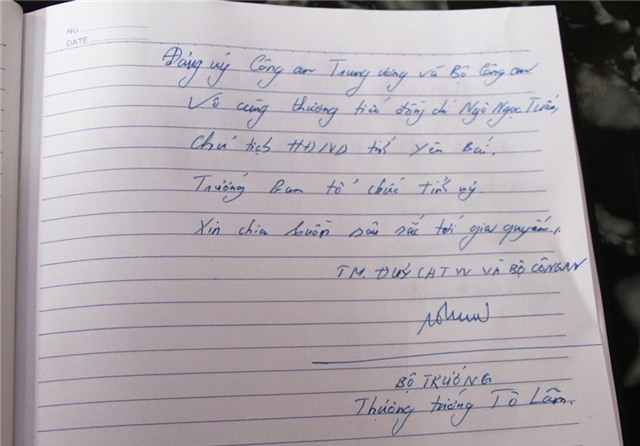 NO
DATE
Đảng ủy Công an Trung ương và Bộ Công an
Vô cùng thương tiếc đồng chí Ngô Ngọc Tuấn,
Chủ tịch HĐND tỉnh Yên Bái.
Trưởng ban tổ chức tỉnh ủy.
Xin chia buồn sâu sắc tới gia quyến.
TM. ĐUCATW VÀ BỘ CÔNG AN
BỘ TRƯỞNG
Thượng tướng Tô Lâm.